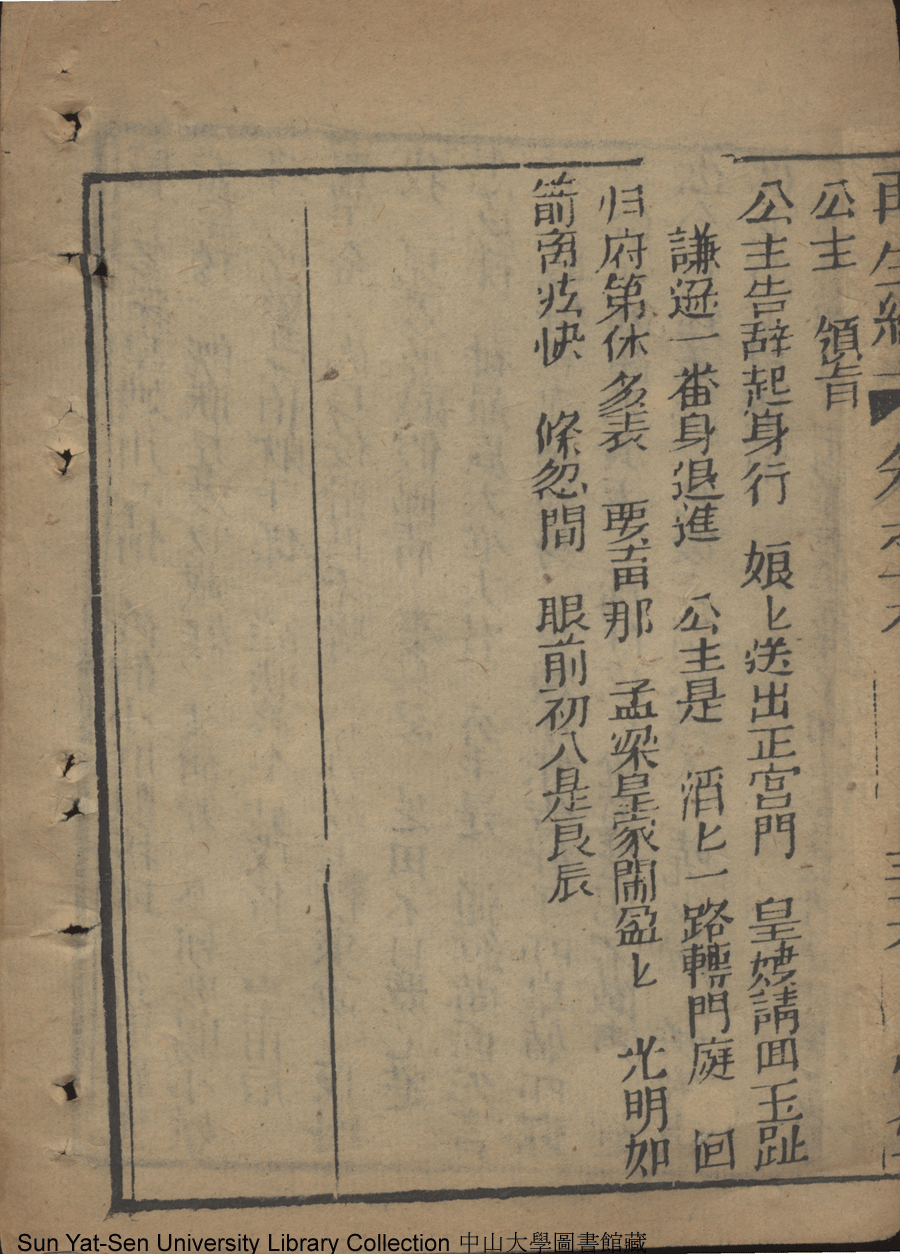 再生
公主　領旨
公主告辞起身行　娘匕送出正宫門　皇𡞱請囬玉趾
謙遜一番身退進　公主是　洒匕一路轉門庭　回
归府第休多表　要書那　孟梁皇家鬧盈匕　光明如
箭离弦快　倏忽間　眼前初八是良辰
Sun Yat-Sen University Library Collection 中山大學圖書館藏